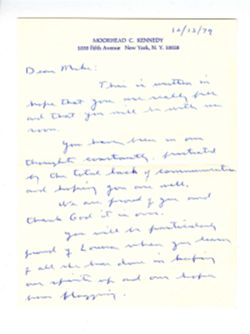 12/13/79
MOORHEAD C. KENNEDY
1030 Fifth Avenue New York, N. Y. 10028
Dear Mike:
This is written in
hope that you are really free
and that you will be with us
soon.
You have been in our
thoughts constantly, frustrated
by the total lack of communication
and hoping you are well.
We are proud of you and
thank God it is over.
You will be particularly
proud of Louisa when you learn
of all she has done in keeping
our spirits up and our hopes
from flagging.